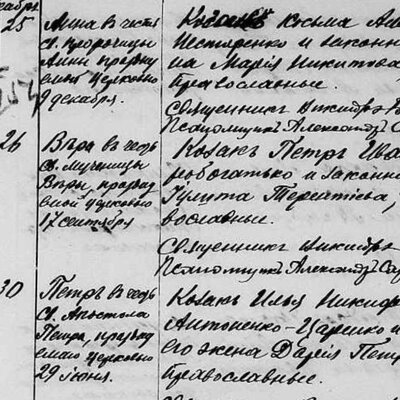 25
Анна въ честь
св. пророчицы
Анны, празну
емой церковью
9 декабря.
Козакъ Козьма
Нестеренко и законн
на Марія Никитова
православные.
Священникъ
Псаломщикъ Александръ
26
Вѣра въ честь
св. мученицы
Вѣры, празд
емой церковью
17 сентября
Козакъ Петръ Ива
робогатько и законн
Іулита Терентіева,
вославные.
Священникъ
Псаломщикъ Александръ
30
Петръ въ честь
св. Апостола
Петра, празд
емаго церковью
29 іюня.
Козакъ Илья Никифо
Антоненко-Царенко и
его жена Дарія Петр
православные.